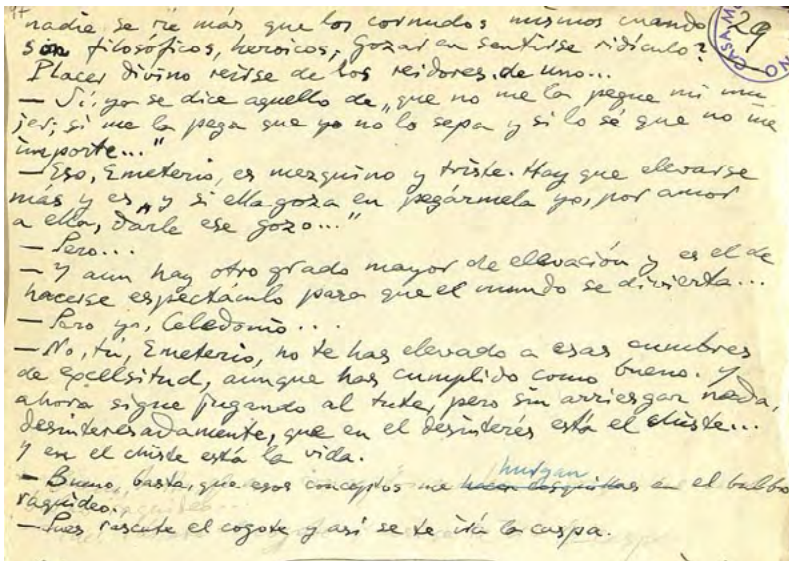 17
29
CASA-M
NO
nadie se ríe más que los cornudos mismos cuando
son filosóficos, heroicos; gozar en sentirse ridículo?
Placer divino reirse de los reidores de uno...
— Sí; ya se dice aquello de „que no me la pegue mi mu
jer; si me la pega que yo no lo sepa y si lo sé que no me
importe..."
— Eso, Emeterio, es mezquino y triste. Hay que elevarse
más y es „y si ella goza en pegármela yo, por amor
a ella, darle ese gozo..."
— Pero...
— Y aun hay otro grado mayor de elevación y es el de
hacerse espectáculo para que el mundo se divierta...
— Pero yo, Celedonio...
— No, tú, Emeterio, no te has elevado a esas cumbres
de excelsitud, aunque has cumplido como bueno. Y
ahora sigue jugando al tute, pero sin arriesgar nada,
desinteresadamente, que en el desinterés está el chiste...
Y en el chiste está la vida.
hurgan
— Bueno, basta, que esos conceptos me hacen cosquillas en el bulbo
raquídeo.
— Pues rascate el cogote y así se te irá la caspa.